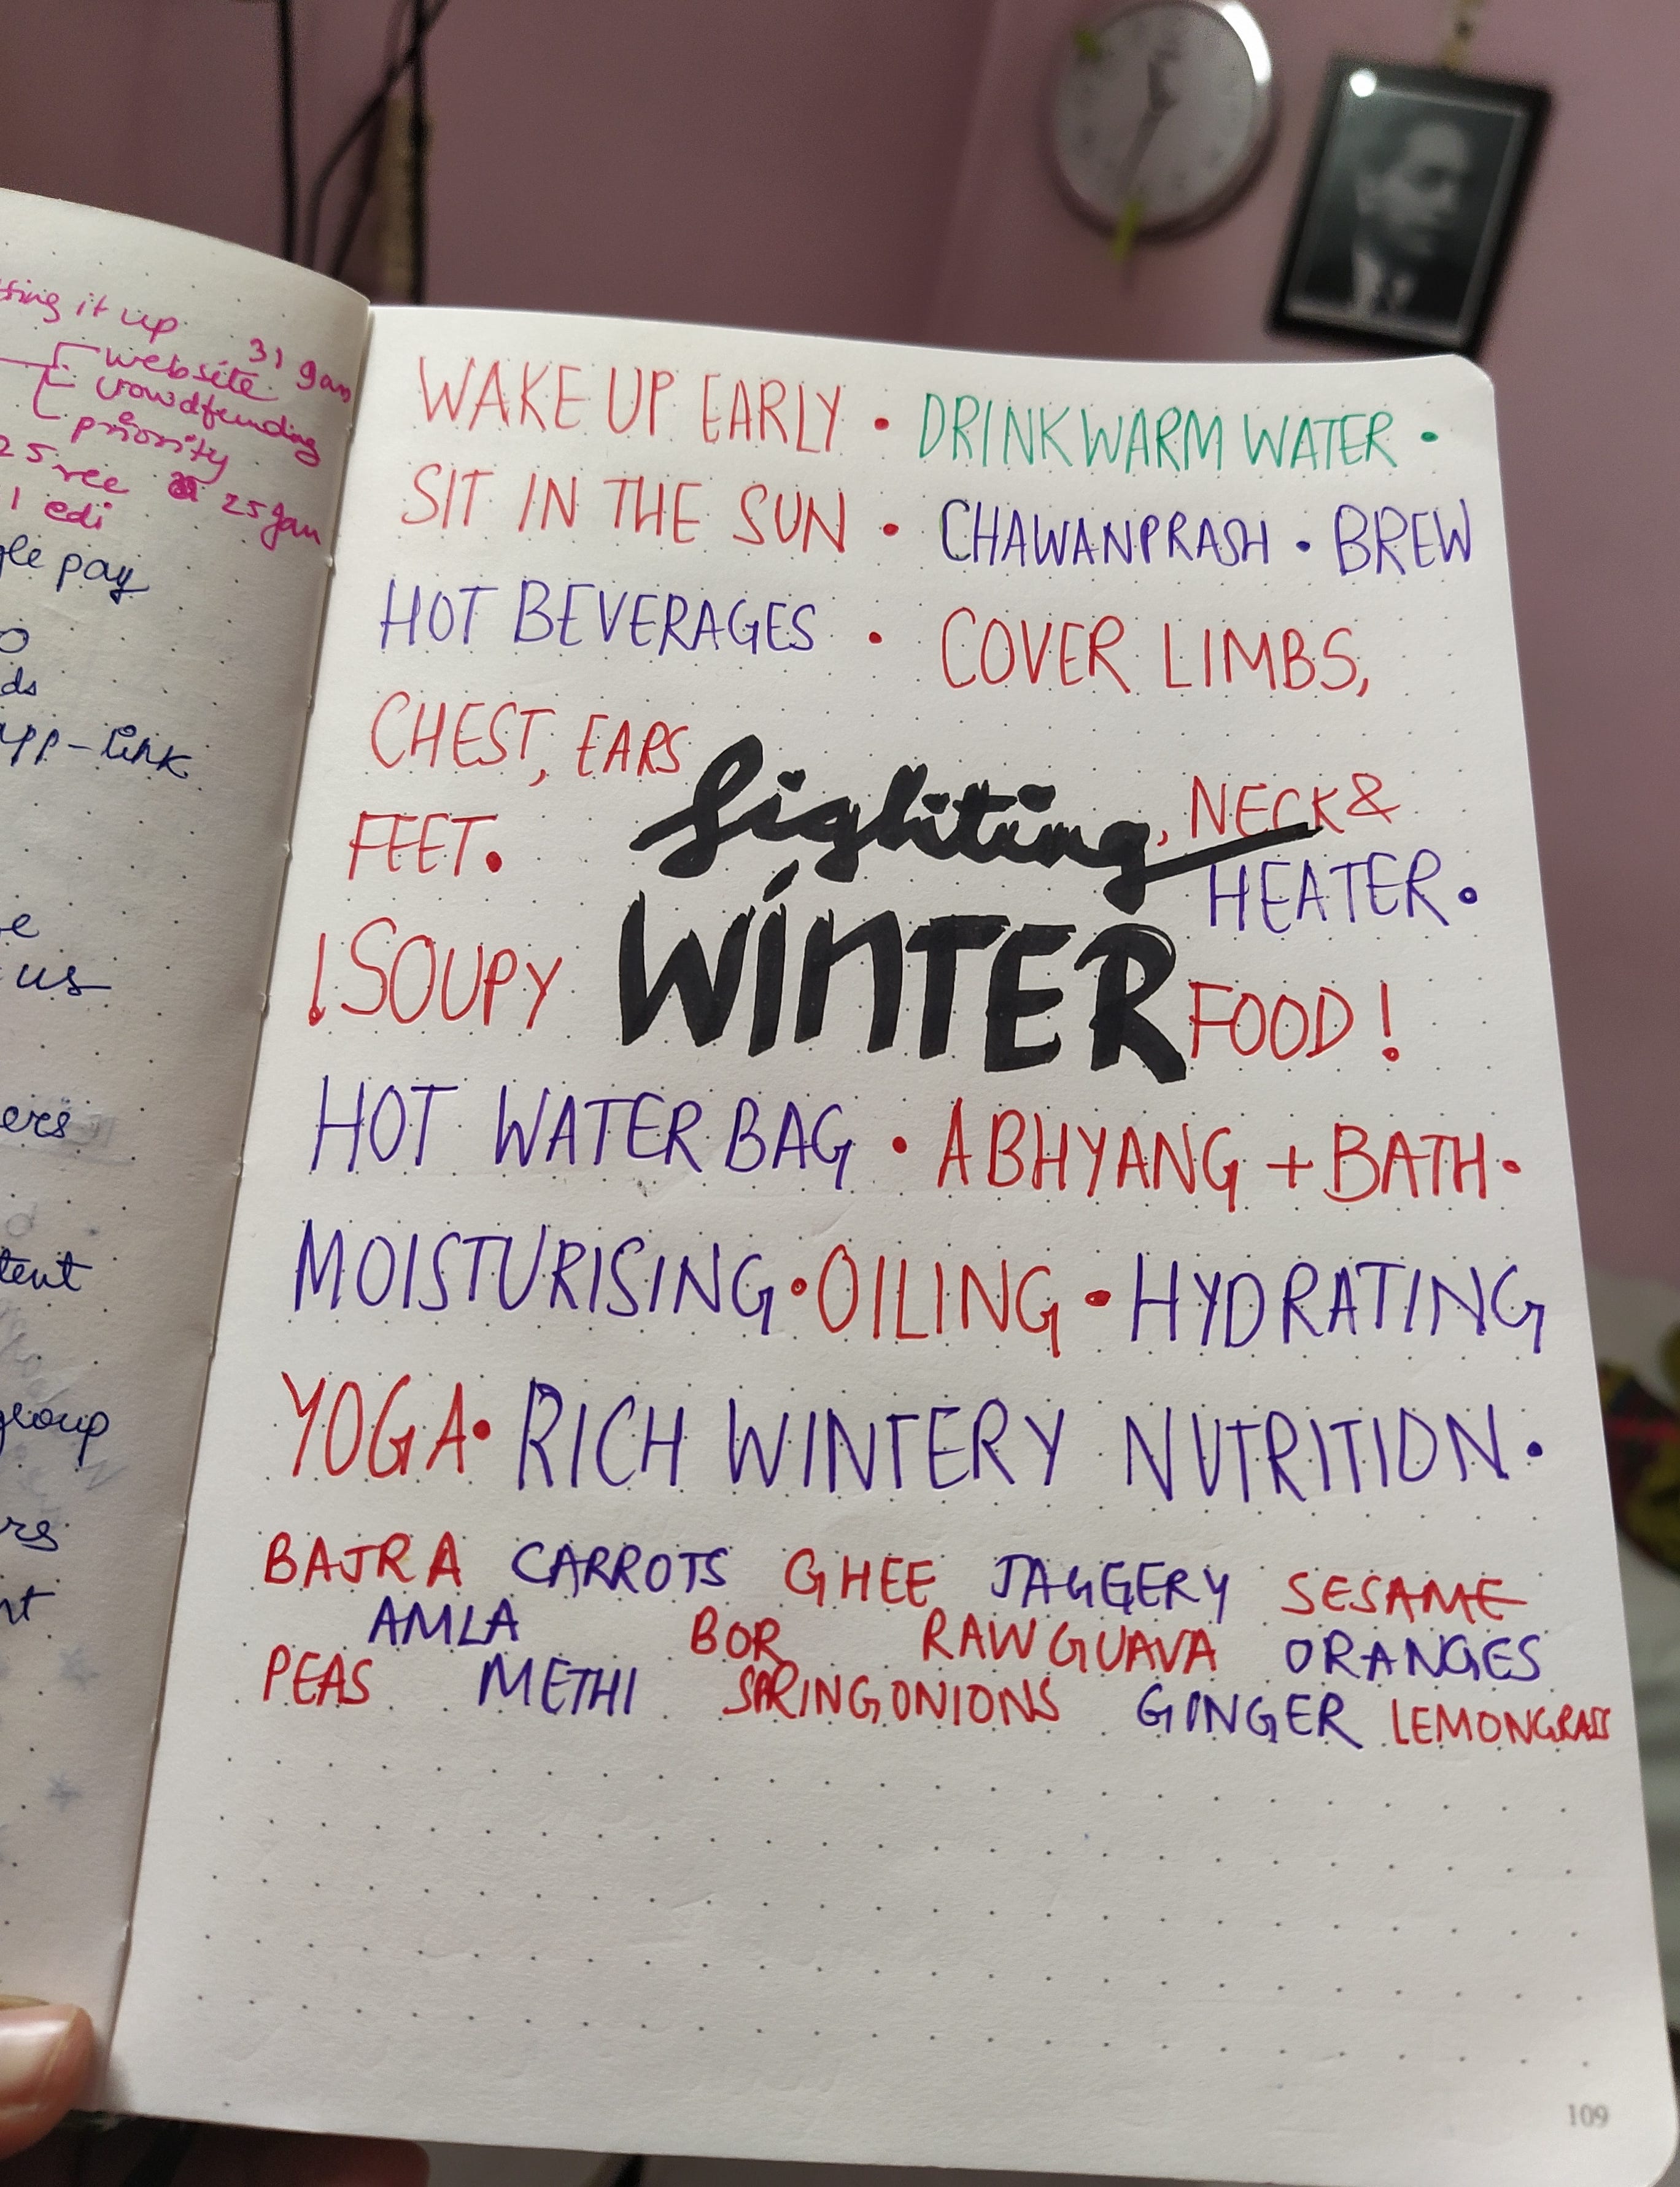 it up
31 Jan
website
crowdfunding
priority
25 Jan
1 edi
pay
link
us
group
WAKE UP EARLY • DRINK WARM WATER •
SIT IN THE SUN • CHAWANPRASH • BREW
HOT BEVERAGES • COVER LIMBS,
CHEST, EARS, NECK &
fighting
FEET. HEATER.
WINTER
! SOUPY FOOD !
HOT WATER BAG • ABHYANG + BATH •
MOISTURISING • OILING • HYDRATING
YOGA • RICH WINTERY NUTRITION •
BAJRA CARROTS GHEE JAGGERY SESAME
AMLA BOR RAW GUAVA ORANGES
PEAS METHI SPRING ONIONS GINGER LEMONGRASS
109